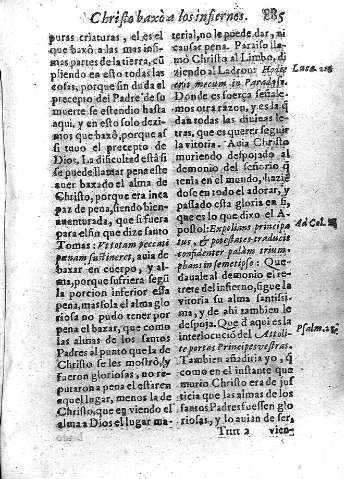 Christo baxò a los infiernos. 885
puras criaturas, el, es el
que baxò à las mas infi-
mas partes de la tierra, cũ
pliendo en esto todas las
cosas, porque sin duda el
precepto del Padre de su
muerte se estendio hasta
aqui, y en esto solo dezi-
mos que baxò, porque assi
si tuuo el precepto de
Dios. La dificultad està si
se puede llamar pena este
auer baxado el alma de
Christo, porque era inca
paz de pena, siendo bien-
auenturada, que si fuera
para el fin que dize santo
Tomas: Vt totam peccati
pœnam sustineret, auia de
baxar en cuerpo, y al-
ma, porque sufriera segũ
la porcion inferior essa
pena, mas sola el alma glo
riosa no pudo tener por
pena el baxar, que como
las almas de los santos
Padres al punto que la de
Christo se les mostrò, y
fueron gloriosas, no re-
putaron a pena el estar en
aquel lugar, menos la de
Christo, que en viendo el
alma a Dios el lugar ma-
terial, no le puede dar, ni
causar pena. Paraiso lla-
mò Christo al Limbo, di
ziendo al Ladron: Hodie
eris mecum in Paradiso.
Luca. 23.
Donde es fuerça señale-
mos otra razon, y es la q̃
dan todas las diuinas le-
tras, que es querer seguir
la vitoria. Auia Christo
muriendo despojado al
demonio del señorio q̃
tenia en el mundo, hazié
dose en todo el adorar, y
passado esta gloria en si,
que es lo que dixo el A-
postol: Expolians principa
Ad Col.
tus, & potestates traduxit
confidenter palàm trium-
phans in semetipso: Que-
dauale al demonio el re-
trete del infierno, sigue la
vitoria su alma santissi-
ma, y de ahi tambien le
despoja. Que d'aqui es la
interlocució del Attolli-
Psalm. 23.
te portas Principes vestras.
Tambien añadiria yo, q̃
como en el instante que
murio Christo era de jus-
ticia que las almas de los
santos Padres fuessen glo
riosas, y lo auian de ser,
Tttt 2 vien-